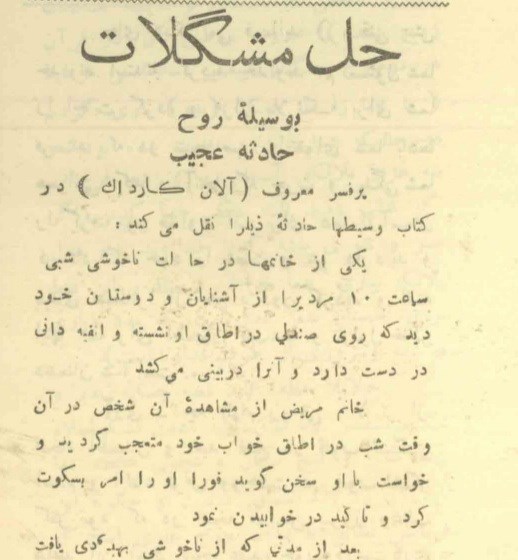 حل مشگلات
بوسیلهٔ روح
حادثه عجیب
پرفسر معروف (آلان کارداك) در
کتاب وسیطها حادثهٔ ذیلرا نقل می کند :
یکی از خانمها در حالت ناخوشی شبی
ساعت ۱۰ مردیرا از آشنایان و دوستان خود
دید که روی صندلی در اطاق او نشسته و انفیه دانی
در دست دارد و آنرا در بینی می کشد
خانم مریض از مشاهدهٔ آن شخص در آن
وقت شب در اطاق خواب خود متعجب گردید و
خواست با او سخن گوید فورا او را امر بسکوت
کرد و تاکید در خوابیدن نمود
بعد از مدتی که از ناخوشی بهبودی یافت